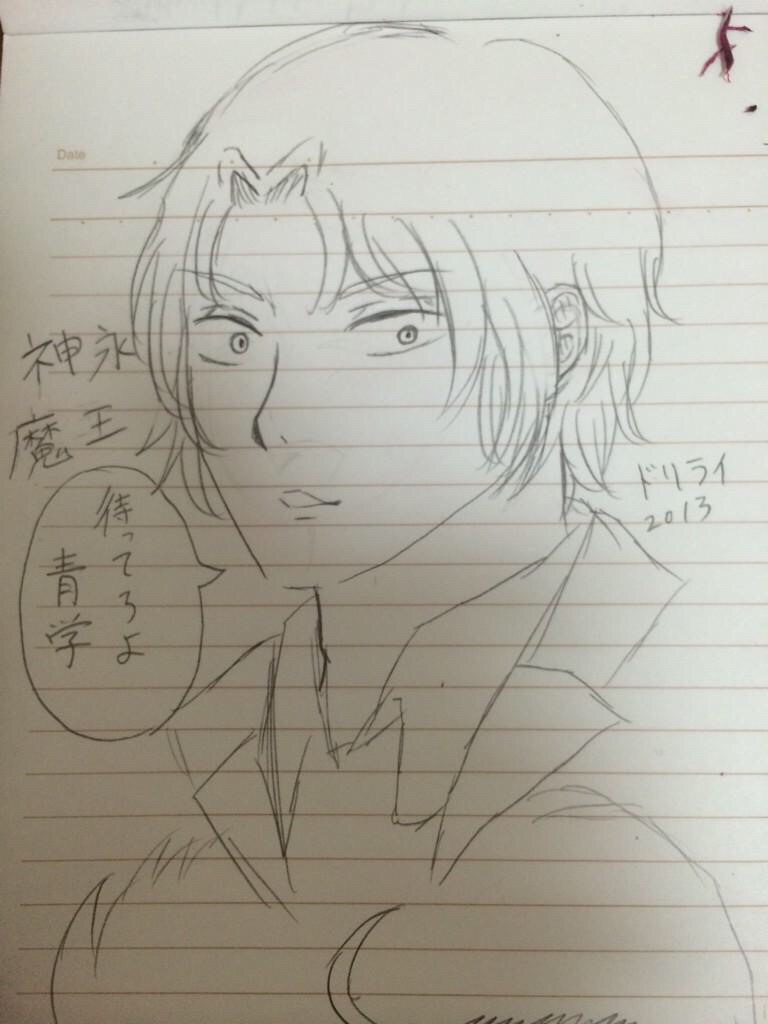 Date
神永
魔王
待ってろよ
青学
ドリライ
2013